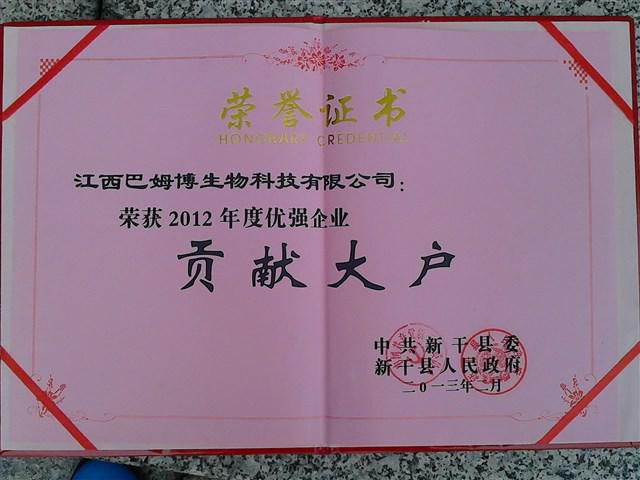 荣誉证书
HONORARY CREDENTIAL
江西巴姆博生物科技有限公司：
荣获2012年度优强企业
贡献大户
中共新干县委
新干县人民政府
二0一三年二月